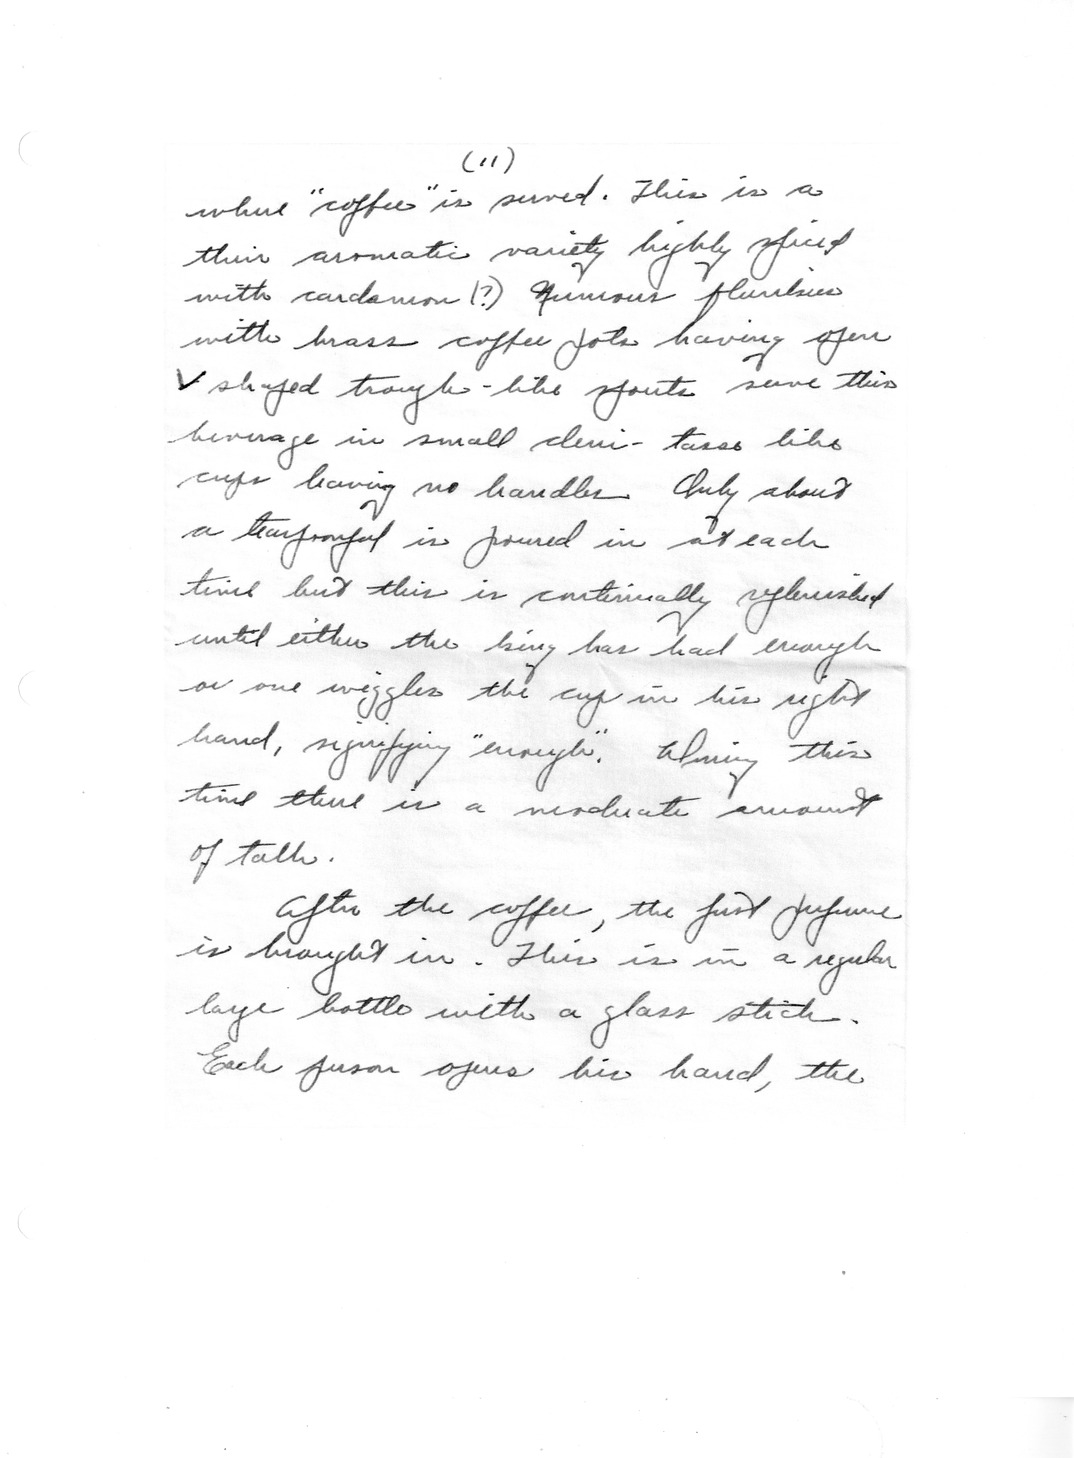 (11)
where "coffee" is served. This is a
thin aromatic variety highly spiced
with cardamon (?) Numerous flunkies
with brass coffee pots having open
V shaped trough-like spouts serve this
beverage in small demi-tasse like
cups having no handles. Only about
a teaspoonful is poured in at each
time but this is continually replenished
until either the king has had enough
or one wiggles the cup in his right
hand, signifying "enough". During this
time there is a moderate amount
of talk.
After the coffee, the first perfume
is brought in. This is in a regular
large bottle with a glass stick.
Each person opens his hand, the